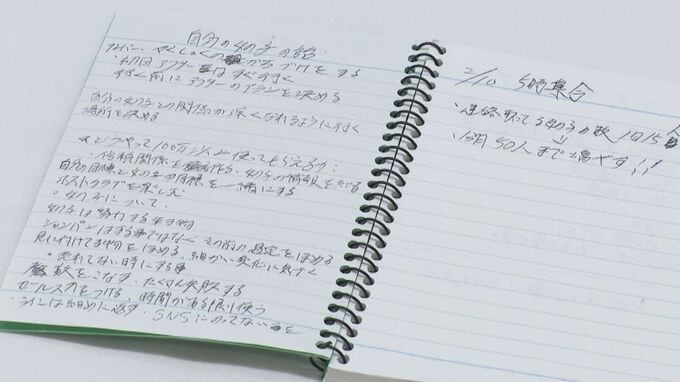 自分の女の子の話
初回アフターはすぐ行く
行く前にアフターのプランを決める
自分の女の子との関係が深くなれるように行く
場所を決める
どうやって100万以上使ってもらえるか
信頼関係を作る、女の子の情報を
自分の目標と女の子の目標を一緒にする
ホストクラブを楽しむ
女の子について
女の子は努力する生き物
シャンパンはする事ではなくその前の過程をほめる
見に付けてる物をほめる、細かい変化に気づく
売れてない時にする事
数をこなす、たくさん失敗する
セールス力をつける、時間がある限り使う
ラインは細めに返す、SNSにのってない
2/10 5時集合
・連絡取ってる女の子の数 1日15人
↓
・1ヶ月50人まで増やす!!